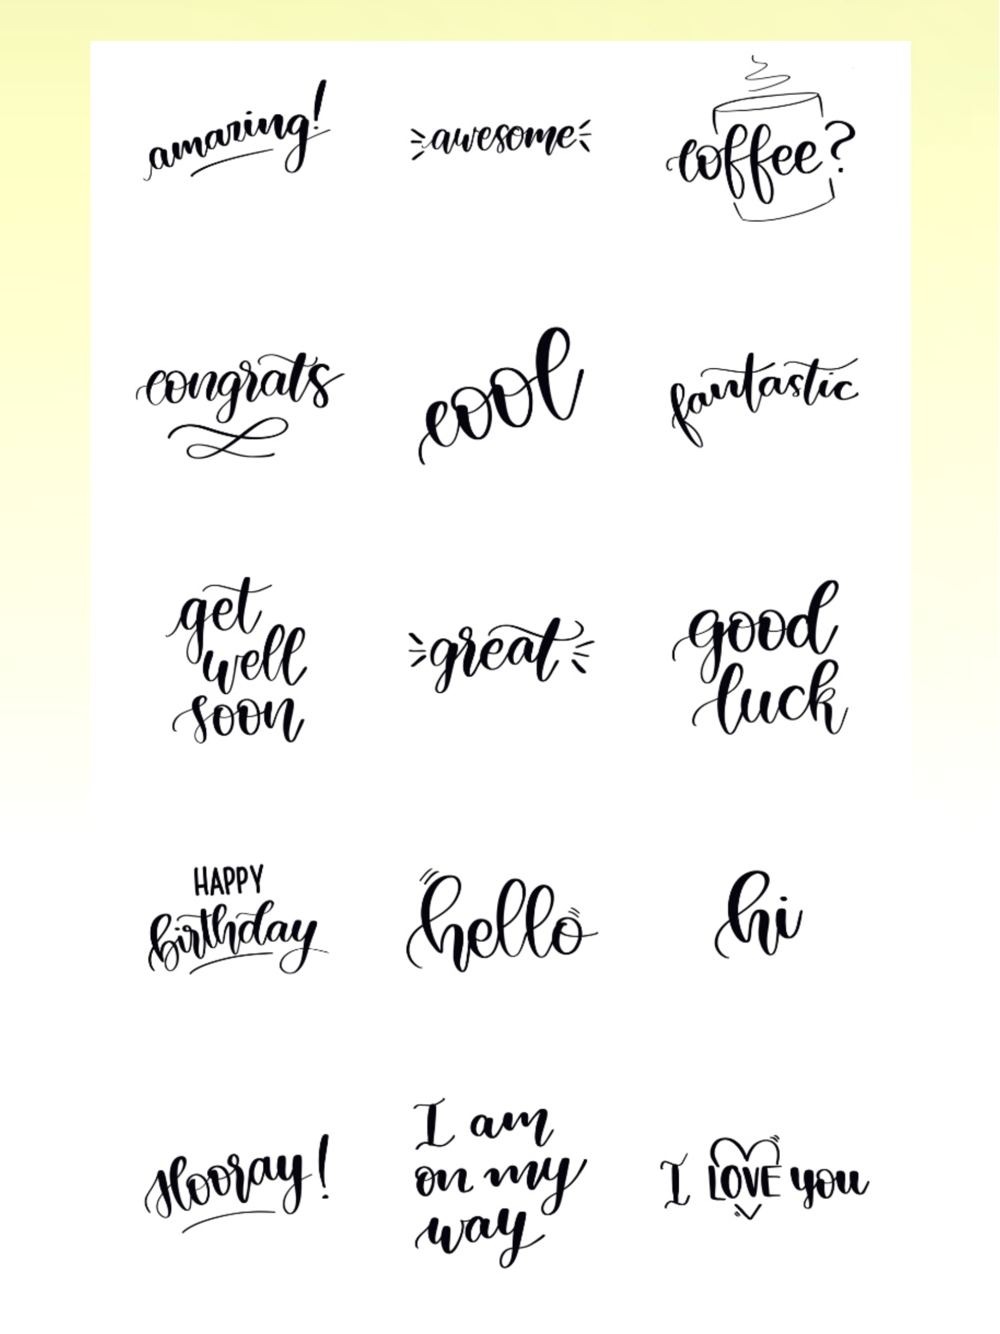 amazing!
awesome
coffee?
congrats
cool
fantastic
get
well
soon
great
good
luck
HAPPY
birthday
hello
hi
Hooray!
I am
on my
way
I LOVE you